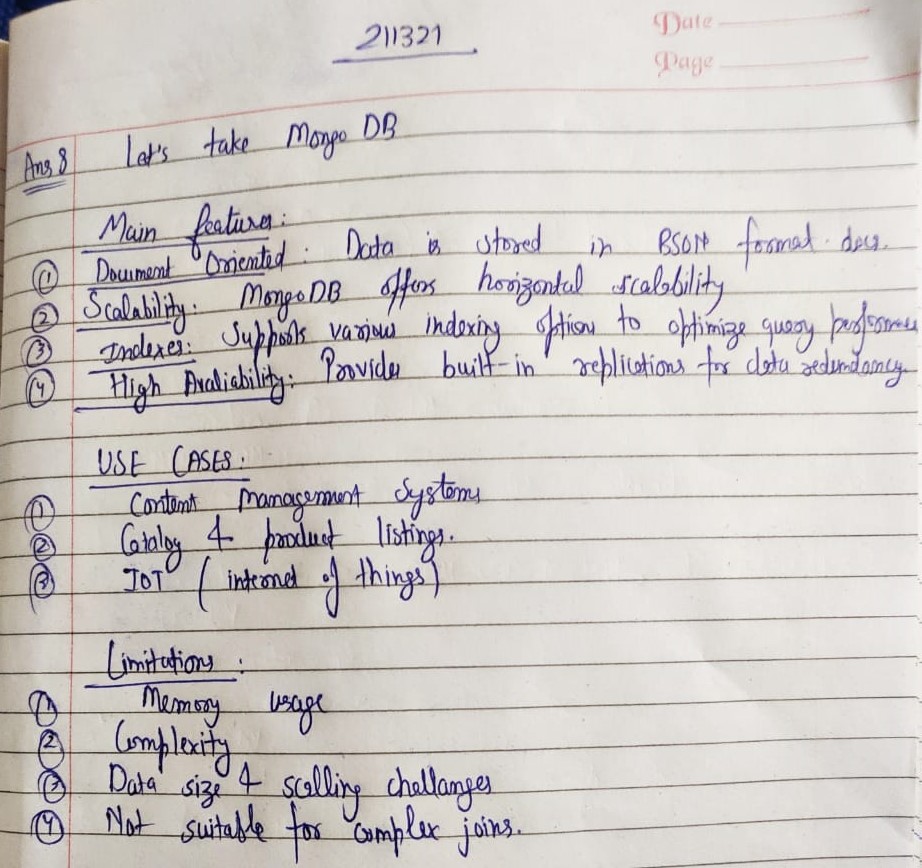 211321
Date
Page
Ans 8 Let's take Mongo DB
Main features:
① Document Oriented: Data is stored in BSON format docs.
② Scalability: MongoDB offers horizontal scalability
③ Indexes: Supports various indexing option to optimize query performance
④ High Avaliability: Provides built-in replications for data redundancy.
USE CASES:
① Content Management Systems
② Catalog & product listings.
③ IOT (internet of things)
Limitations:
① Memory usage
② Complexity
③ Data size & scalling challanges
④ Not suitable for complex joins.